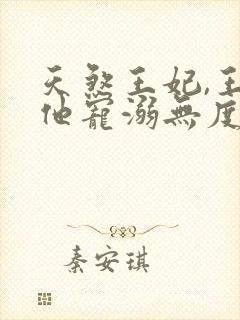 天煞王妃,王
他寵溺無度
秦安琪